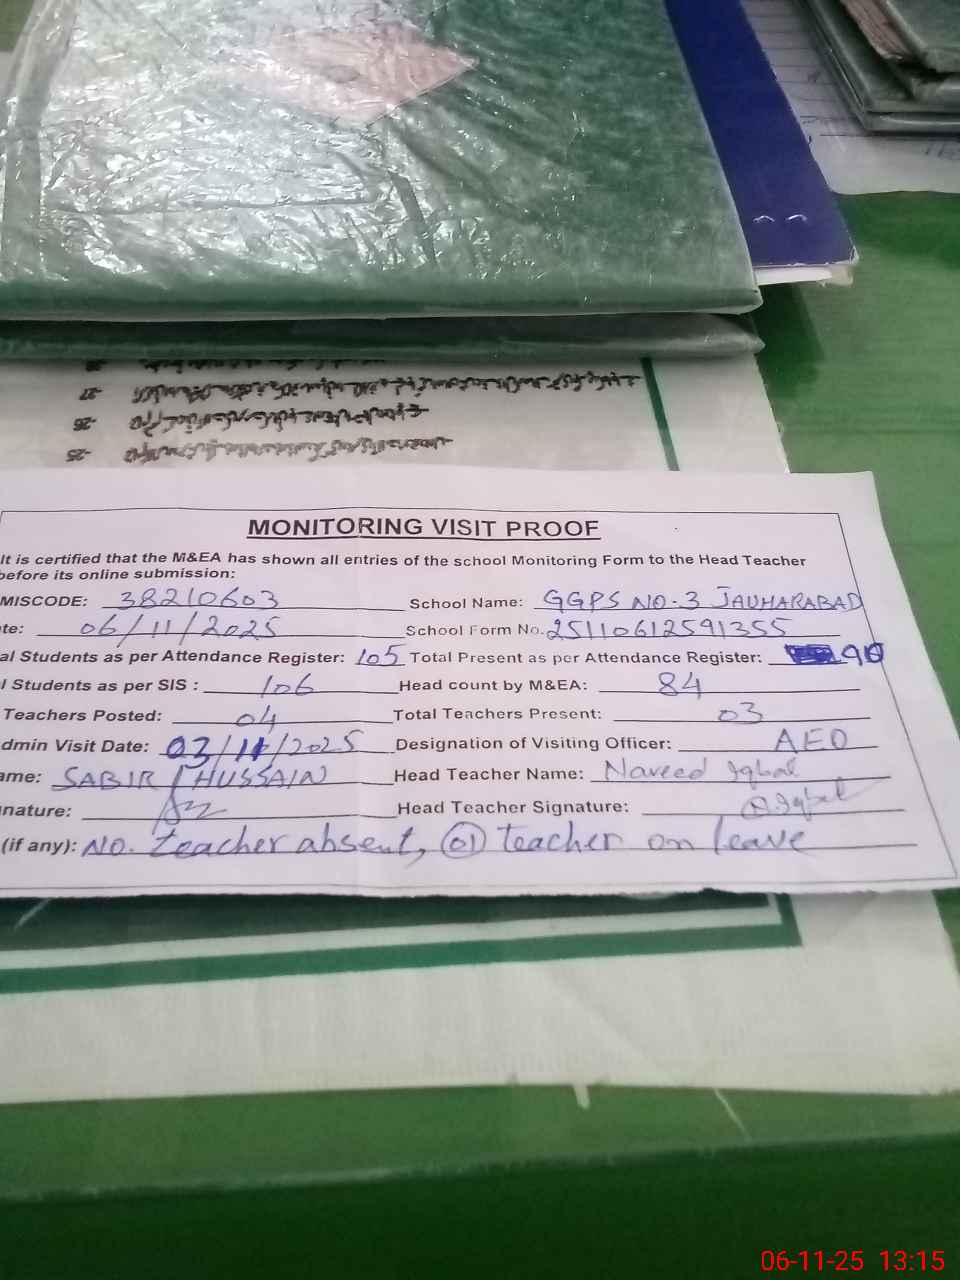 -27
-26
-25
MONITORING VISIT PROOF
It is certified that the M&EA has shown all entries of the school Monitoring Form to the Head Teacher
before its online submission:
MISCODE: 38210603 School Name: GGPS NO.3 JAUHARABAD
te: 06/11/2025 School Form No. 25110612591355
al Students as per Attendance Register: 105 Total Present as per Attendance Register: 90
l Students as per SIS : 106 Head count by M&EA: 84
Teachers Posted: 04 Total Teachers Present: 03
dmin Visit Date: 03/11/2025 Designation of Visiting Officer: AEO
ame: SABIR HUSSAIN Head Teacher Name: Naveed Iqbal
nature: Head Teacher Signature: Iqbal
(if any): NO. teacher absent, 01 teacher on leave
06-11-25 13:15